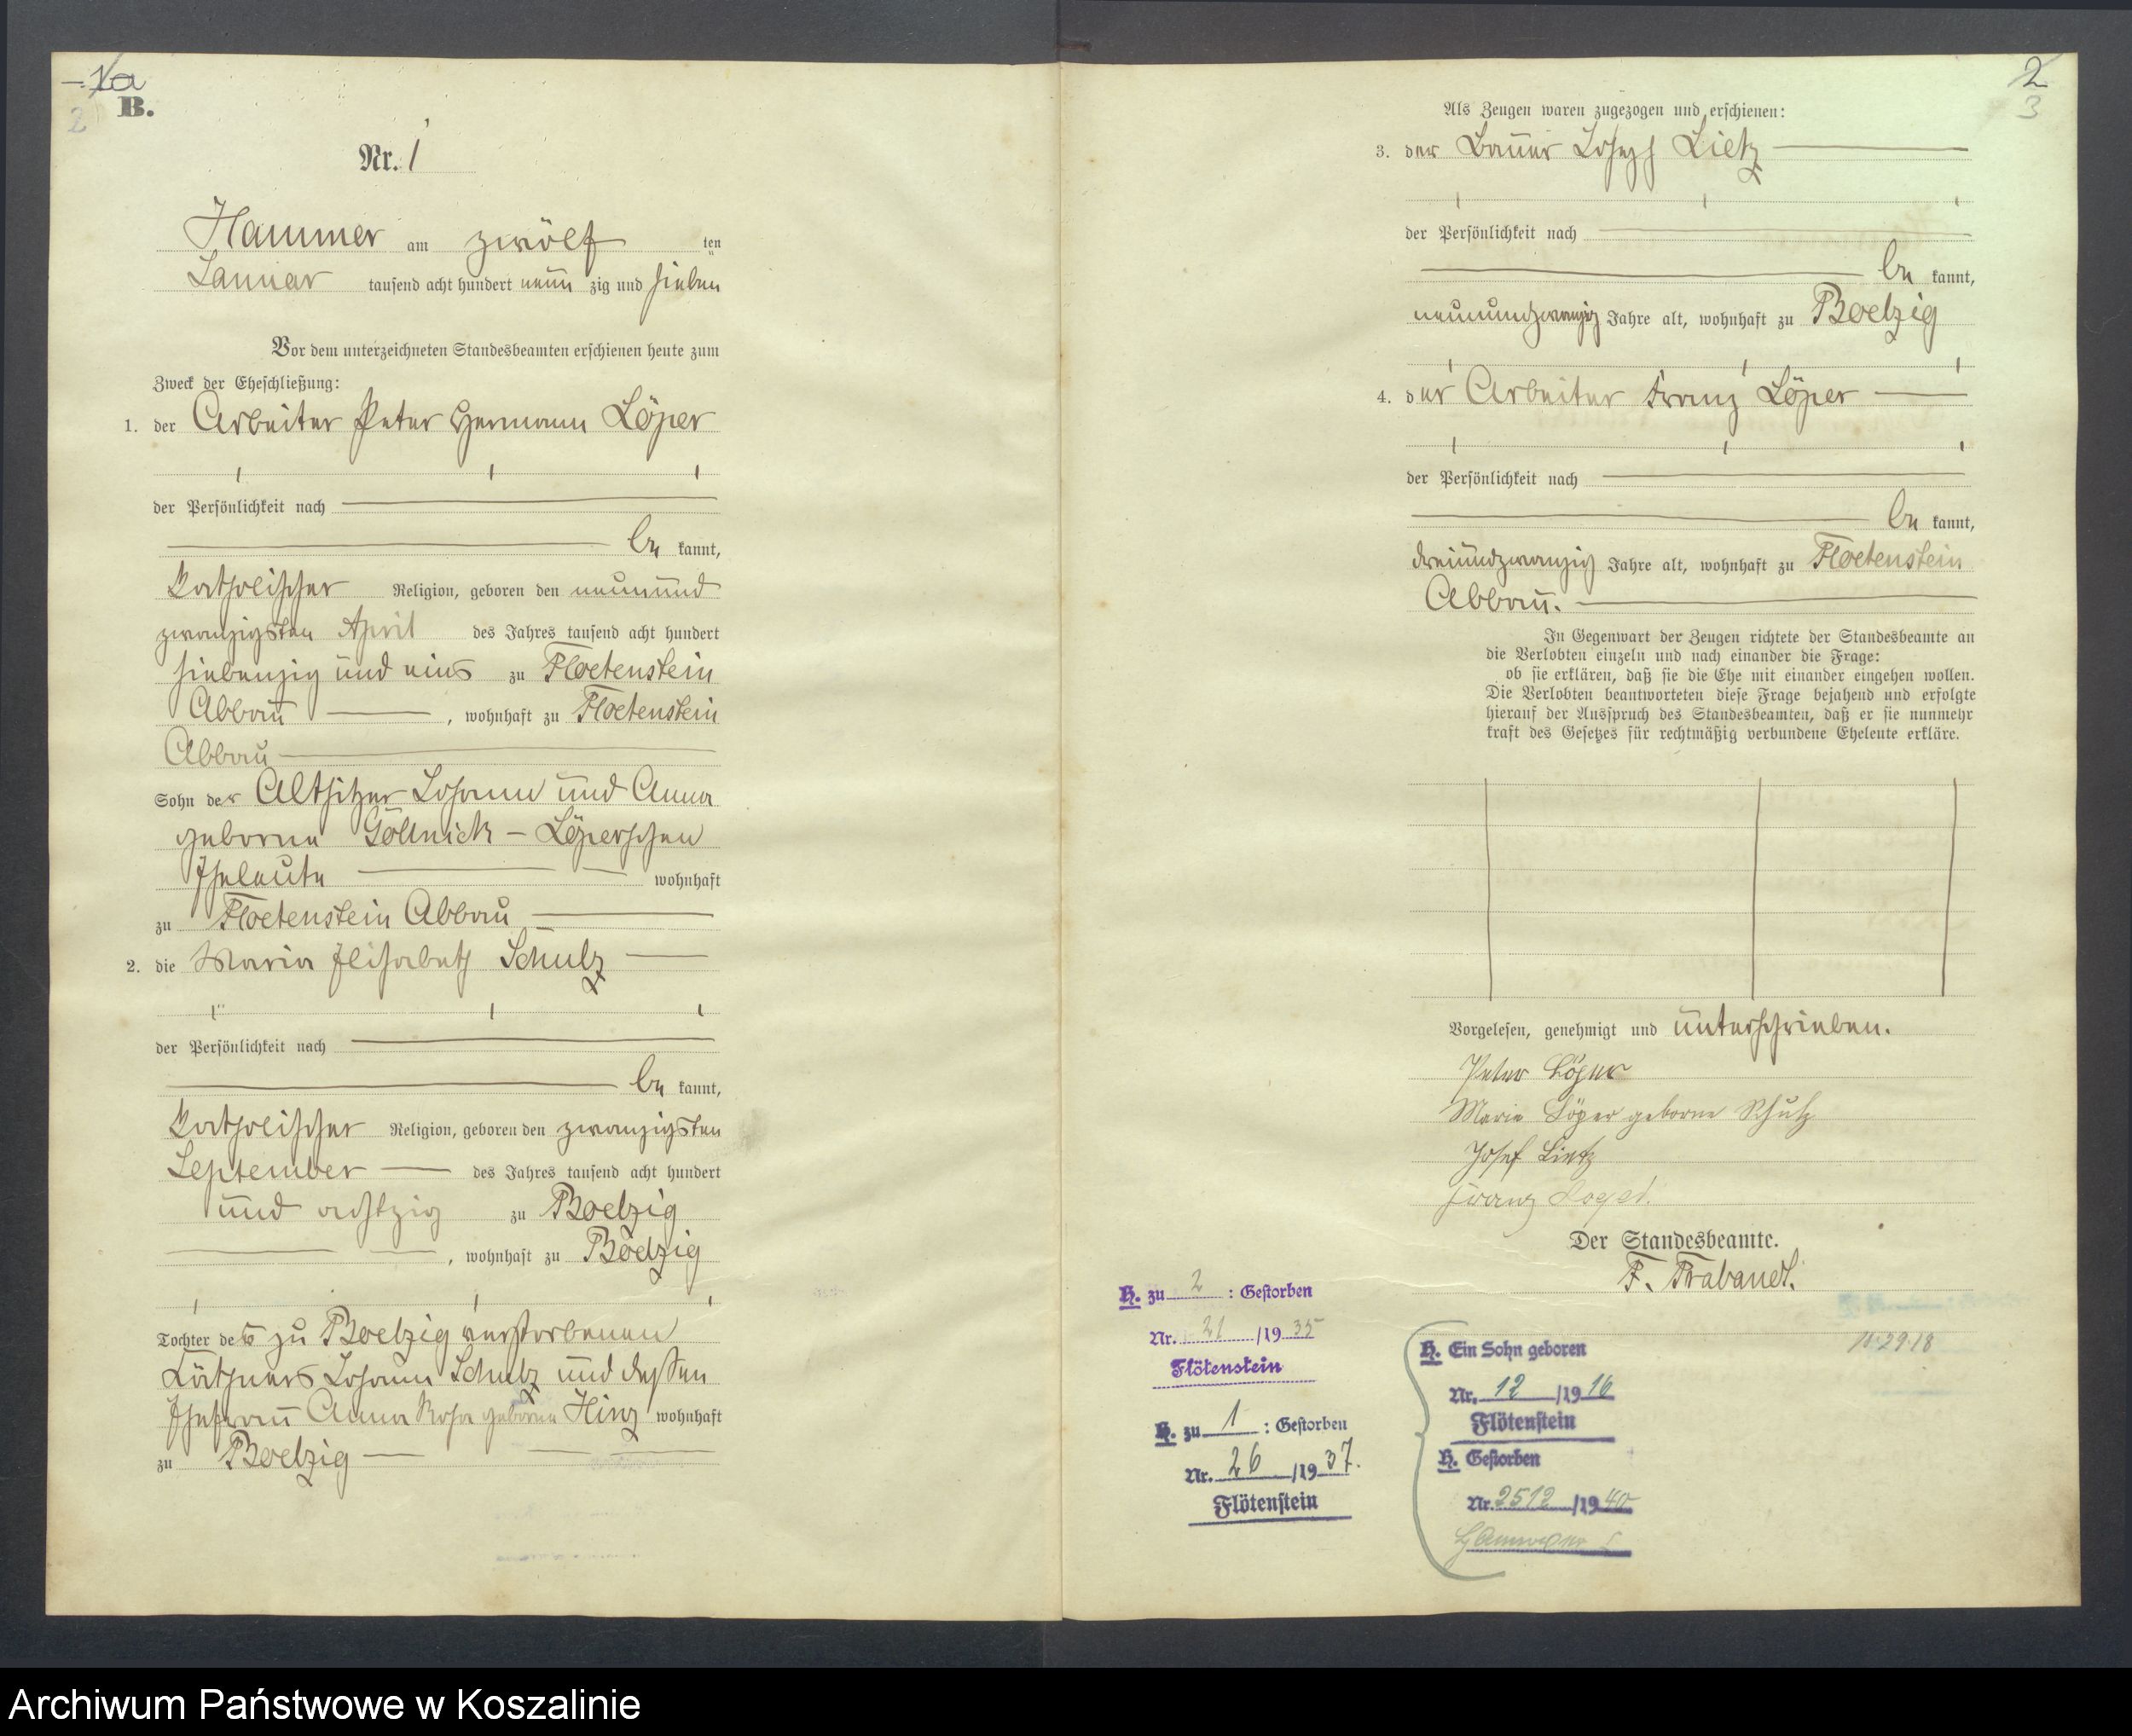 1a
B.
2
Nr. 1
Hammer am zwölf ten
Januar tausend acht hundert neun zig und sieben
Vor dem unterzeichneten Standesbeamten erschienen heute zum
Zweck der Eheschließung:
1. der Arbeiter Peter Hermann Löper
der Persönlichkeit nach
be kannt,
katholischer Religion, geboren den neunund
zwanzigsten April des Jahres tausend acht hundert
siebenzig und eins zu Floetenstein
Abbau , wohnhaft zu Floetenstein
Abbau
Sohn der Altsitzer Johann und Anna
geborne Göllnick - Löperschen
Eheleute wohnhaft
zu Floetenstein Abbau
2. die Maria Elisabeth Schulz
der Persönlichkeit nach
be kannt,
katholischer Religion, geboren den zwanzigsten
September des Jahres tausend acht hundert
und achtzig zu Boelzig
, wohnhaft zu Boelzig
Tochter des zu Boelzig verstorbenen
Käthners Johann Schulz und dessen
Ehefrau Anna Rosa geborne Hinz wohnhaft
zu Boelzig
2
3
Als Zeugen waren zugezogen und erschienen:
3. der Bauer Joseph Lietz
der Persönlichkeit nach
be kannt,
neunundzwanzig Jahre alt, wohnhaft zu Boelzig
4. der Arbeiter Franz Löper
der Persönlichkeit nach
be kannt,
dreiundzwanzig Jahre alt, wohnhaft zu Floetenstein
Abbau.
In Gegenwart der Zeugen richtete der Standesbeamte an
die Verlobten einzeln und nach einander die Frage:
ob sie erklären, daß sie die Ehe mit einander eingehen wollen.
Die Verlobten beantworteten diese Frage bejahend und erfolgte
hierauf der Ausspruch des Standesbeamten, daß er sie nunmehr
kraft des Gesetzes für rechtmäßig verbundene Eheleute erkläre.
Vorgelesen, genehmigt und unterschrieben.
Peter Löper
Maria Löper geborne Schulz
Josef Lietz
Franz
Der Standesbeamte.
F. Trabandt.
H. zu 2 : Gestorben
Nr. 21 /19 35
Flötenstein
H. zu 1 : Gestorben
Nr. 26 /19 37.
Flötenstein
H. Ein Sohn geboren
Nr. 12 /19 16
Flötenstein
H. Gestorben
Nr. 2512 /19 40
Hannover
Archiwum Państwowe w Koszalinie